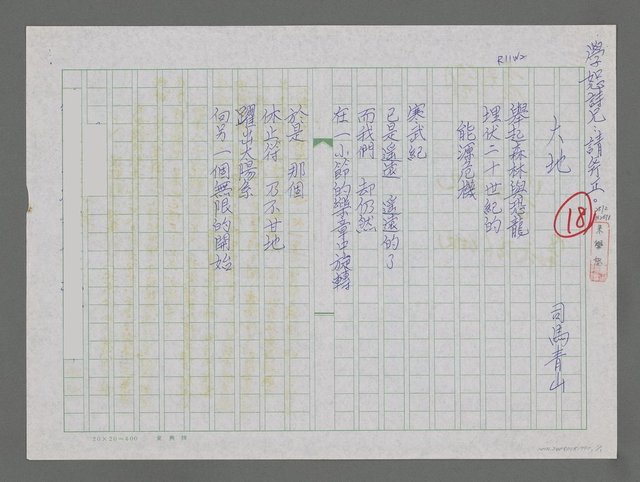 學恕詩兄：請斧正。
R11W2
大地
司馬青山
18
舉起森林與恐龍
埋伏二十世紀的
能源危機
寒武紀
已是遙遠 遙遠的了
而我們 却仍然
在一小節的樂章中旋轉
於是 那個
休止符 乃不甘地
躍出太陽系
向另一個無限的開始
20×20=400